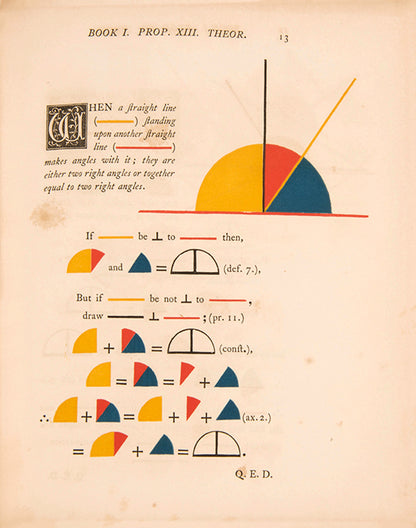 BOOK I. PROP. XIII. THEOR. 13
WHEN a ſtraight line
( ) ſtanding
upon another ſtraight
line ( )
makes angles with it; they are
either two right angles or together
equal to two right angles.
If be ⊥ to then,
and = (def. 7.),
But if be not ⊥ to ,
draw ⊥ ; (pr. 11.)
+ = (conſt.),
= = +
∴ + = + + (ax. 2.)
= + = .
Q. E. D.